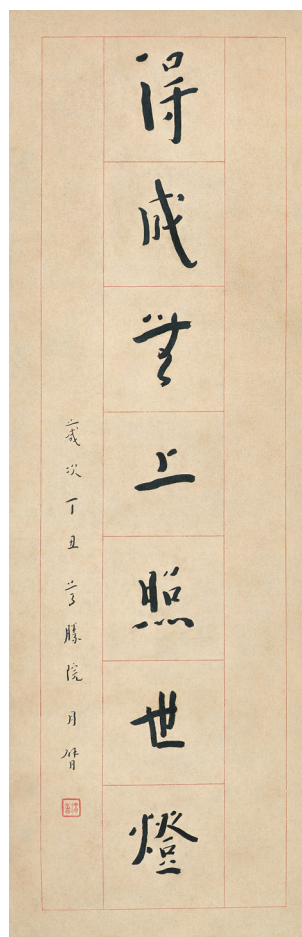 得成無上照世燈
歲次丁丑尊勝院月臂